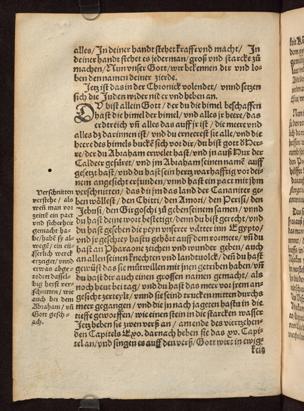 alles / In deiner handt stehet krafft vnd macht / In
deiner handt stehet es jederman / groß vnd starck zů
machen / Nun vnser Gott / wir bekennen dir vnd lo=
ben den namen deiner zierde.
Jetz ist das in der Chronick volendet / vnnd setzen
sich die Juden wider nider vnd heben an.
DV bist allein Gott / der du die himel beschaffen
hast die himel der himel / vnd alles jr heere / das
erdtreich vñ alles das auff jr ist / die meere vnd
alles dz darinnen ist / vnd du ernerest sie alle / vnd die
heere des himels bucke sich vor dir / du bist gott
der du Abraham erwelet hast / vnd jn auß Vur der
Caldeer gefiert / vnd jm Abraham seinen name auff
gesetzt hast / vnd du hast sein hertz warhafftig vor dei=
nem angesicht erfunden / vnnd hast ein pact mit jhm
verschnitten / das du jm das land der Cananiter ge=
ben wöllest / den Chitti / den Amori / den Perisi / den
Jebusi / den Girgosi zů geben seinem samen / vnnd
du hast deine wort bestetiget / denn du bist gerecht / vnd
du hast gesehen die peyn vnserer vätter inn Egypto /
vnd jr geschrey hastu gehört auff dem rormeer / vñ du
hast an Pharaone zeichen vnd wunder geben / auch
an allen seinen knechten vnd landtuolck / deñ du hast
gewüst das sie můtwillen mit jnen getriben haben / vñ
du hast dir auch einen grossen namen gemacht / als
noch heut bei tag / vnd du hast das meer vor jrem an=
gesicht zerteylt / vnnd sie seind trucken mitten durchs
meer gegangen / vnd die jn nach jagten hastu in die
tieffe geworffen / wie einen stein in die starcken wasser
Jetz heben sie zwen verß an / am ende des viertzehen=
den Capitels Exo. darnach heben sie das xv. Capi=
tel an / vnd singen es auff den verß / Gott wirt in ewig
keit
Verschnitten
verstehe / als
weñ man vor
zeiten ein pact
vnd sicherheit
gemacht ha=
be / hab es als
wegen / ein
ergangen / vnnd
etwas
Abraham / vñ
Gott gesch=
ach.